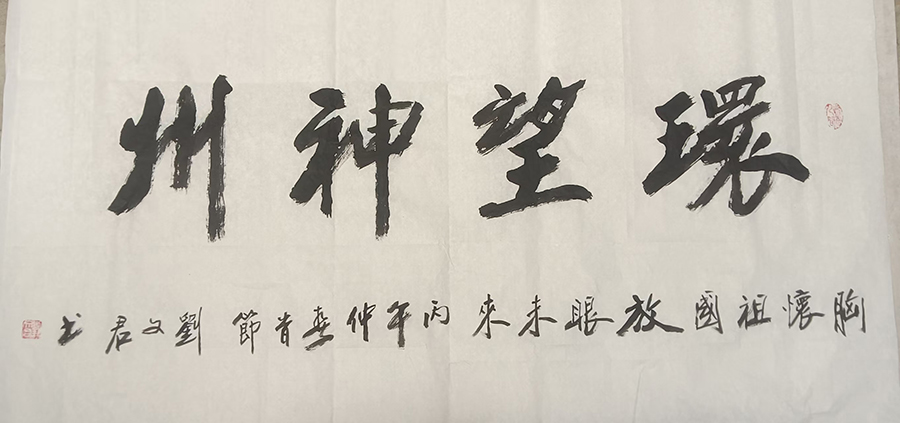 環望神州
胸懷祖國放眼未來丙午仲春肖節劉文君书